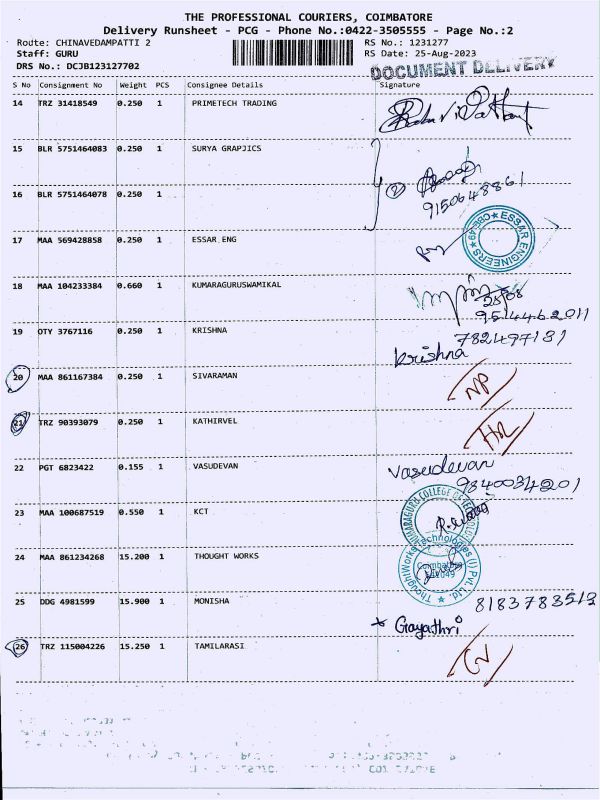 THE PROFESSIONAL COURIERS, COIMBATORE
Delivery Runsheet - PCG - Phone No.:0422-3505555 - Page No.:2
Route: CHINAVEDAMPATTI 2 RS No.: 1231277
Staff: GURU RS Date: 25-Aug-2023
DRS No.: DCJB123127702 DOCUMENT DELIVERY
S No Consignment No Weight PCS Consignee Details Signature
14 TRZ 31418549 0.250 1 PRIMETECH TRADING
15 BLR 5751464083 0.250 1 SURYA GRAPJICS
9150648861
16 BLR 5751464078 0.250 1
17 MAA 569428858 0.250 1 ESSAR ENG
ESSAR ENGINEERS
18 MAA 104233384 0.660 1 KUMARAGURUSWAMIKAL
9514462011
19 OTY 3767116 0.250 1 KRISHNA 782497131
krishna
20 MAA 861167384 0.250 1 SIVARAMAN NP
21 TRZ 90393079 0.250 1 KATHIRVEL
22 PGT 6823422 0.155 1 VASUDEVAN Vasudevan
9840034201
23 MAA 100687519 0.550 1 KCT
KUMARAGURU COLLEGE OF TECHNOLOGY
24 MAA 861234268 15.200 1 THOUGHT WORKS
ThoughtWorks Technologies (I) Pvt. Ltd.
Coimbatore
25 DDG 4981599 15.900 1 MONISHA 8183783513
Gayathri
26 TRZ 115004226 15.250 1 TAMILARASI